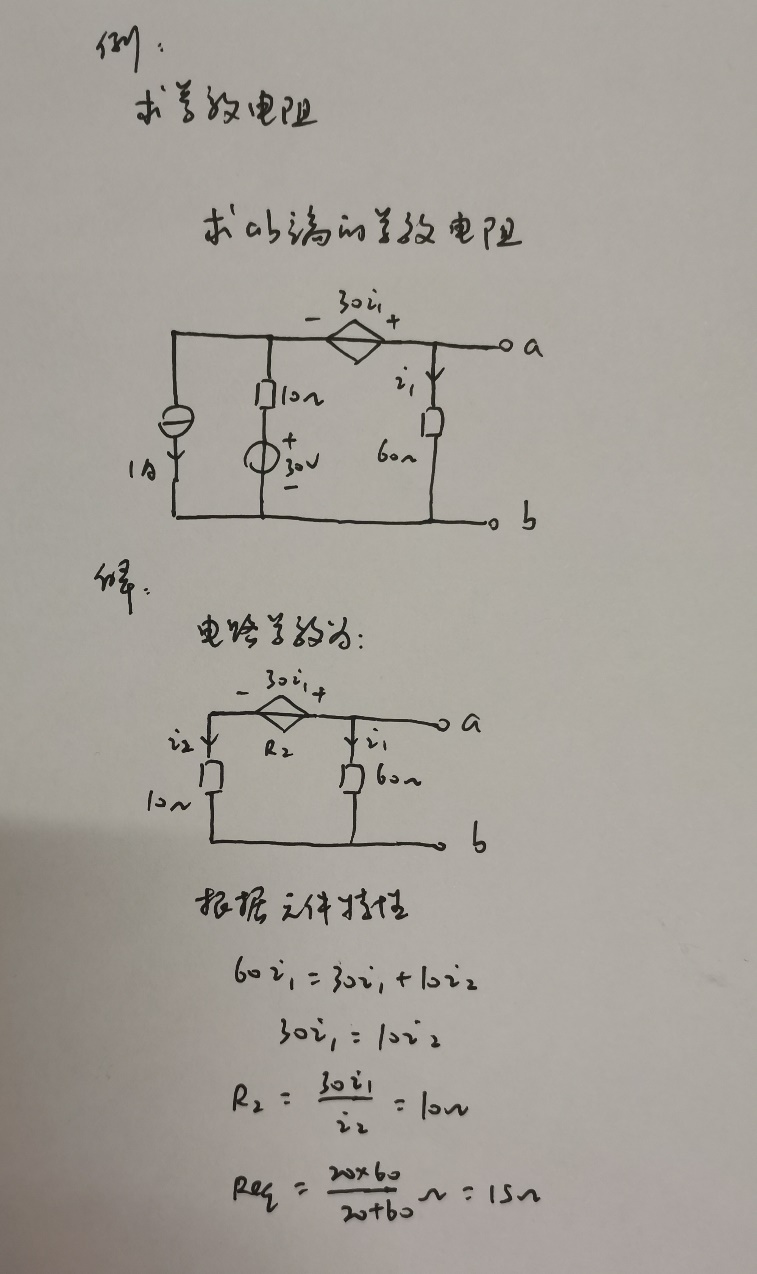 例:
求等效电阻
求ab端的等效电阻
- 30i₁ +
a
10Ω
i₁
1A
+
30V
-
60Ω
b
解:
电路等效为:
- 30i₁ +
a
i₂
R₂
i₁
10Ω
60Ω
b
根据元件特性
60i₁ = 30i₁ + 10i₂
30i₁ = 10i₂
R₂ = 30i₁/i₂ = 10Ω
Req = 20×60/20+60 Ω = 15Ω